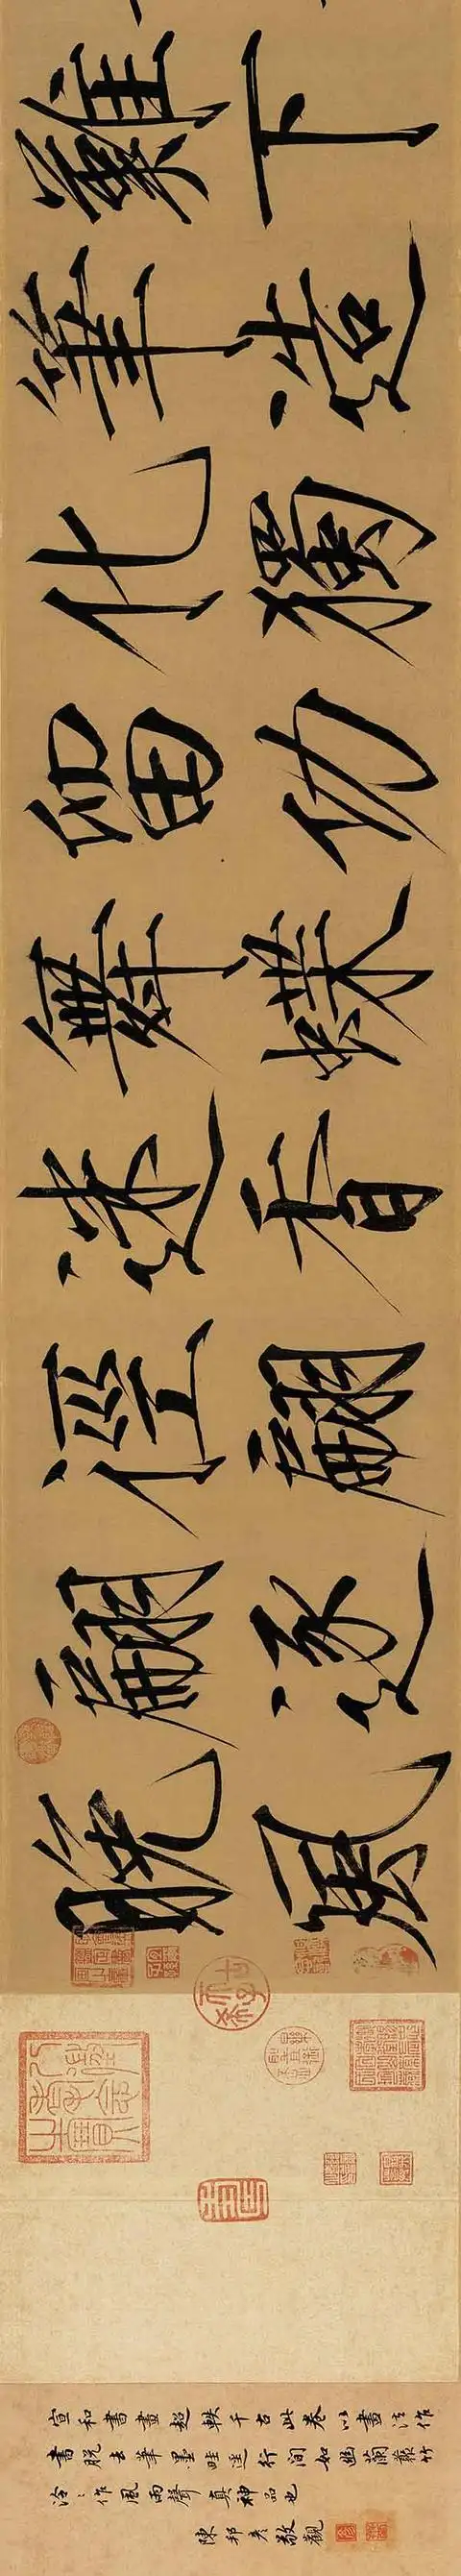 難下
筆造
化獨
留功
舞蝶
迷香
徑翩
翩逐
晚風
宣和書畫超軼千古此卷以畫法作
書脫去筆墨畦逕行間如幽蘭叢竹
泠〻作風雨聲真神品也
陳邦彥敬觀